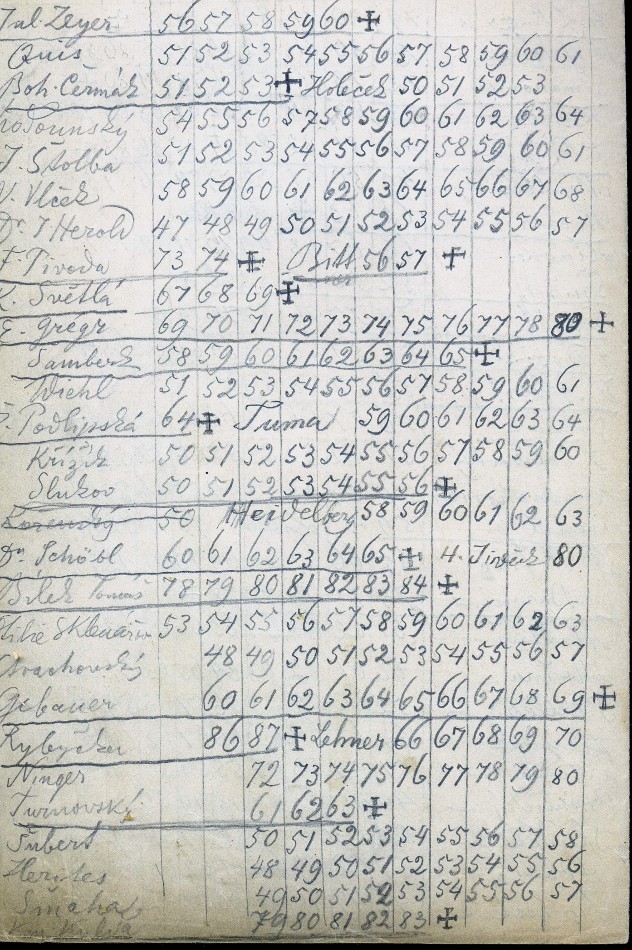 Jul. Zeyer 56 57 58 59 60 ✝
Quis 51 52 53 54 55 56 57 58 59 60 61
Boh. Čermák 51 52 53 ✝ Holeček 50 51 52 53
54 55 56 57 58 59 60 61 62 63 64
J. Štolba 51 52 53 54 55 56 57 58 59 60 61
V. Vlček 58 59 60 61 62 63 64 65 66 67 68
Dr. J Herold 47 48 49 50 51 52 53 54 55 56 57
F. Pivoda 73 74 ✝ 56 57 ✝
K. Světlá 67 68 69 ✝
E. Grégr 69 70 71 72 73 74 75 76 77 78 80 ✝
Šamberk 58 59 60 61 62 63 64 65 ✝
Wiehl 51 52 53 54 55 56 57 58 59 60 61
Podlipská 64 ✝ Tuma 59 60 61 62 63 64
Křižík 50 51 52 53 54 55 56 57 58 59 60
Slukov 50 51 52 53 54 55 56 ✝
50 Heidelberg 58 59 60 61 62 63
Dr. Schöbl 60 61 62 63 64 65 ✝ 80
Bílek Tomáš 78 79 80 81 82 83 84 ✝
53 54 55 56 57 58 59 60 61 62 63
48 49 50 51 52 53 54 55 56 57
Gebauer 60 61 62 63 64 65 66 67 68 69 ✝
Rybička 86 87 ✝ Lehner 66 67 68 69 70
Ninger 72 73 74 75 76 77 78 79 80
Turnovský 61 62 63 ✝
Šubert 50 51 52 53 54 55 56 57 58
Herites 48 49 50 51 52 53 54 55 56
Šmaha 49 50 51 52 53 54 55 56 57
79 80 81 82 83 ✝